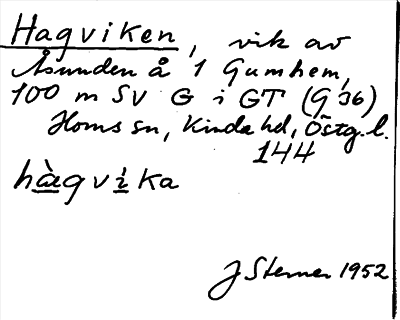 Hagviken, vik av
Åsunden å 1 Gumhem,
100 m SV G i GT (G 36)
Horns sn, Kinda hd, Östg.l.
144
hàgvìka
J Sterner 1952